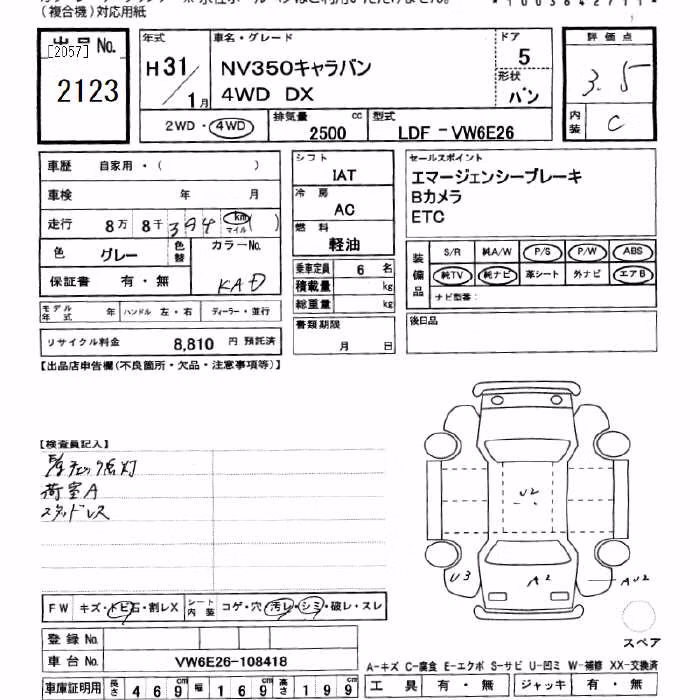 (複合機)対応用紙
出品No.
[2057]
2123
年式
H 31/1月
車名・グレード
NV350キャラバン
4WD DX
ドア
5
形状
バン
評価点
3.5
内装
C
2WD・4WD
排気量
2500 cc
型式
LDF-VW6E26
車歴 自家用・( )
車検 年 月
走行 8万 8千 394 km マイル ( )
色 グレー 色替
カラーNo.
KAD
保証書 有・無
モデル年式 年 ハンドル 左・右 ディーラー・並行
リサイクル料金 8,810 円 預託済
シフト
IAT
冷房
AC
燃料
軽油
乗車定員 6 名
積載量 kg
総重量 kg
書類期限
月 日
セールスポイント
エマージェンシーブレーキ
Bカメラ
ETC
装備品
S/R 純A/W P/S P/W ABS
純TV 純ナビ 革シート 外ナビ エアB
ナビ型番:
後日品
【出品店申告欄(不良箇所・欠品・注意事項等)】
【検査員記入】
荷室A
スタッドレス
U2
U3
A2
AU2
スペア
FW キズ・トビ石・割レX
シート内装 コゲ・穴・汚レ・シミ・破レ・スレ
登録No.
車台No. VW6E26-108418
車庫証明用 長さ 469cm 幅 169cm 高さ 199
A-キズ C-腐食 E-エクボ S-サビ U-凹ミ W-補修 XX-交換済
工具 有・無 ジャッキ 有・無